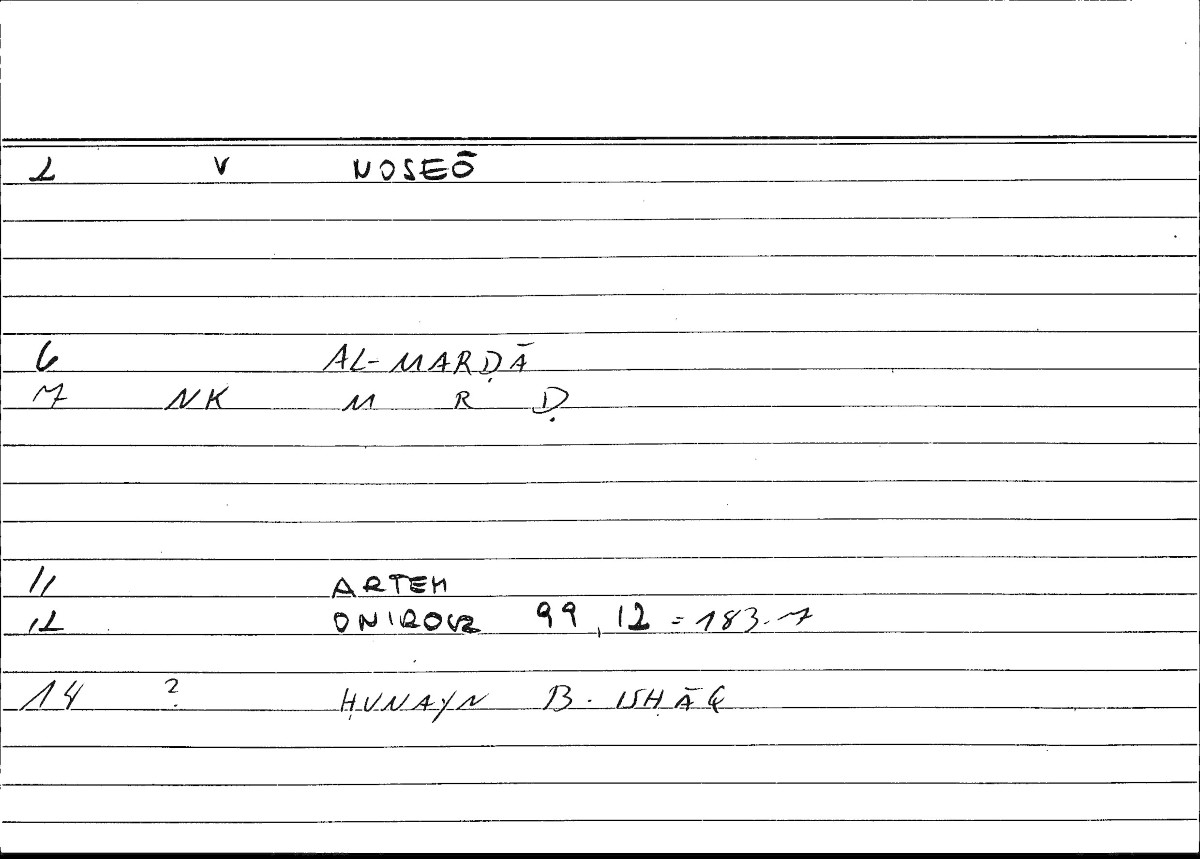 2 V NOSEŌ
6 AL-MARḌĀ
7 NK M R Ḍ
11 ARTEM
12 ONIROCR 99,12 = 183.7
14 ? ḤUNAYN B. ISḤĀQ